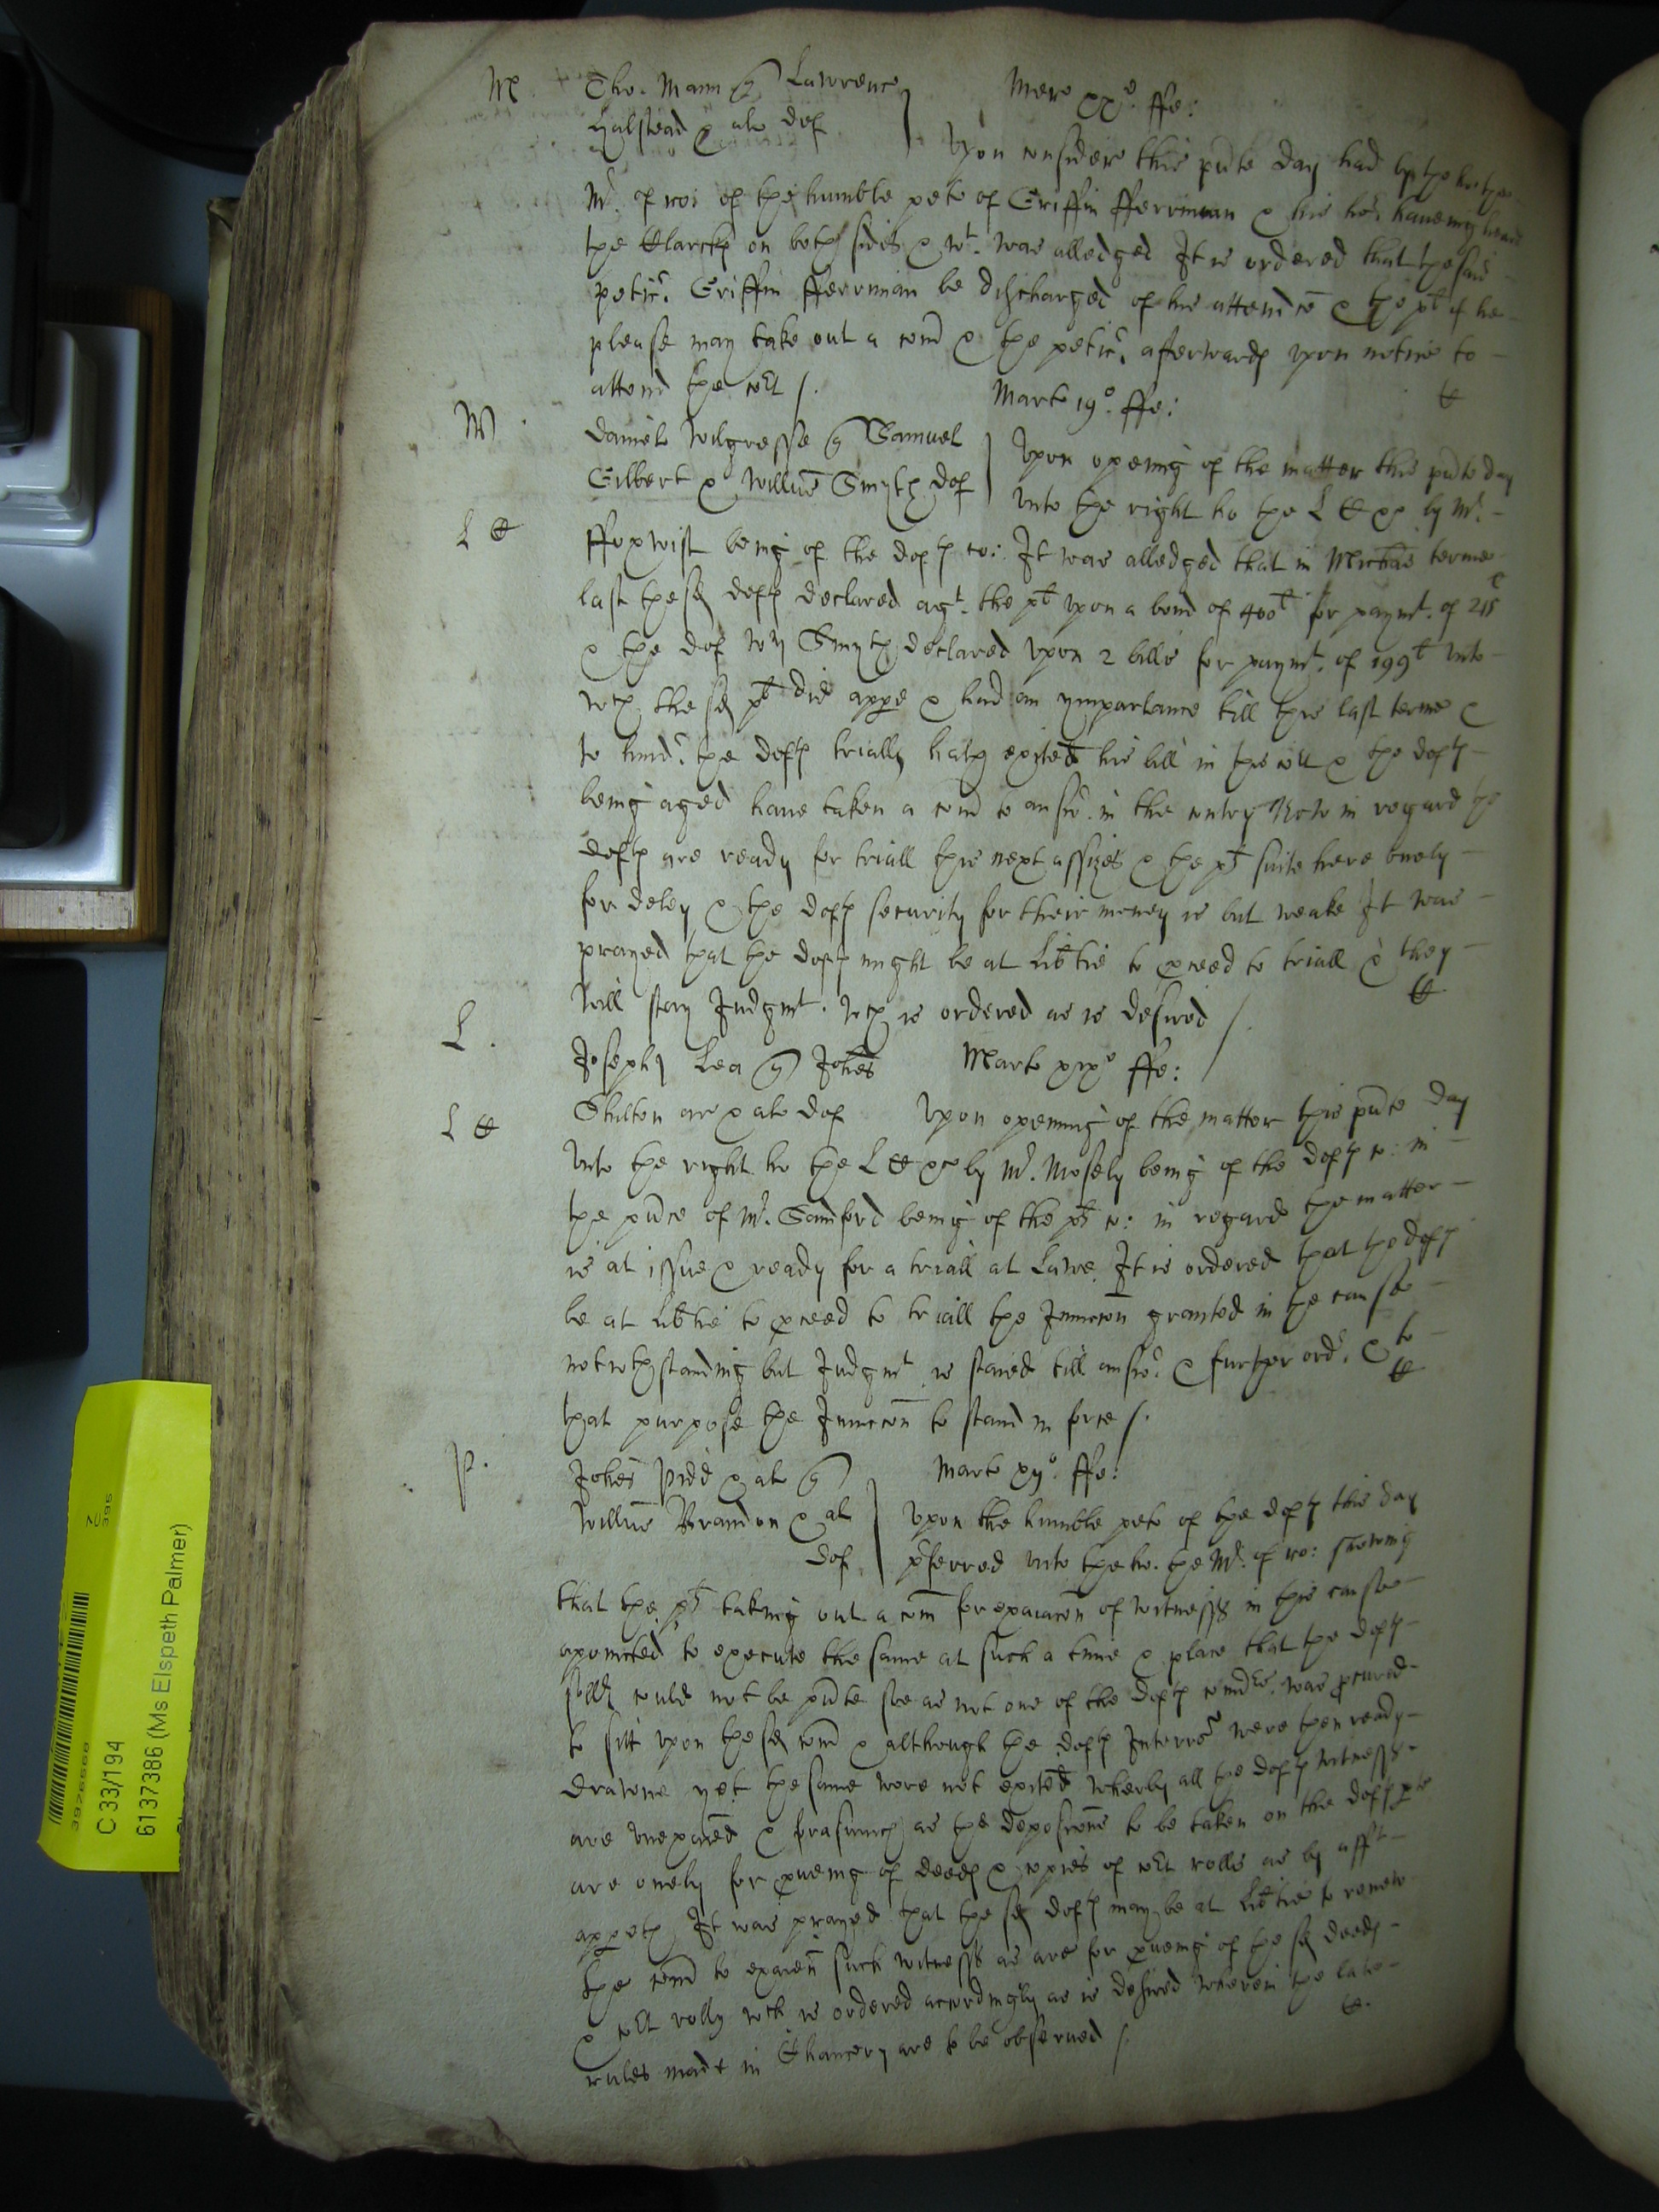 M Tho. Mann q Lawrence Mercr xxo. ffe:
Halstead & al defts
Vpon consider this pnte day had by the ho the
Mr. of roi of the humble petc of Griffin fferriman & his haueing heard
the Clarckes on both sides & wt. was alledged It is ordered that the said
peticr. Griffin fferriman be discharged of his attendce & the plt if he
please may take out a comn & the peticr. afterwards vpon notice to
attend the cort /.
M Marte 19o. ffe:
Daniel Wilgresse q Samuel
Gilbert & Willm Smyth def
Vpon opening of the matter this pnte day
vnto the right ho the L by Mr.
L ffoxwist being of the defts co: It was alledged that in Michas terme
last the sd defts declared agt. the plt vpon a bond of 400l for paymt. of 215l
& the def Wm Smyth declared vpon 2 bills for paymt. of 199l vnto
wch the sd plt did appe & had an ymparlance till this last terme &
to hind. the defts triall, hath exited his bill in the cort & the defts
being aged haue taken a comn to answ. in the contry Now in regard the
defts are ready for triall this next assizes & the plts suite here onely
for deley & the defts security for their money is but weake It was
prayed that the defts might be at libtie to pceed to triall & they
will stay Judgmt. wch is ordered as is desired /
L. Joseph Lea q Johes Marte xixo ffe:
Skilton ar & al def Vpon opening of the matter this pnte day
L vnto the right ho the L by Mr. Mosely being of the defts co: in
the pnce of Mr. Samford being of the plts co: in regard the matter
is at issue & ready for a triall at Lawe It is ordered that the defts
be at libtie to pceed to triall the Jniuncon granted in the cause
notwthstanding but Judgmt. is staied till answ. & further ord. & to
that purpose the Jniuncon to stand in force /.
P. Johes Pidd & al q Marte xixo. ffe:
Willm Brandon & al
def
Vpon the humble petc of the defts this day
pferred vnto the ho. the Mr. of ro: shewing
that the plts taking out a comn for exaiacon of witnesses in this cause
apointed to execute the same at such a time & place that the defts
could not be pnte soe as not one of the defts comrs. was pcured
to sitt vpon the sd comn & although the defts Interrs were then ready
drawne yet the same were not exited wherby all the defts witnesses
are vnexaied & forasmuch as the deposicons to be taken on the defts pte
are onely for pueing of deeds & copies of cort rolls as by afft
appeth It was prayed that the sd defts may be at libtie to renew
the comn to exaien such witnesses as are for pueing of the sd deeds
& cort rolls wch is ordered accordingly as is desired wherein the late
rules made in Chancery are to be obserued /.
39765568
C 33/194
6137386 (Ms Elspeth Palmer)